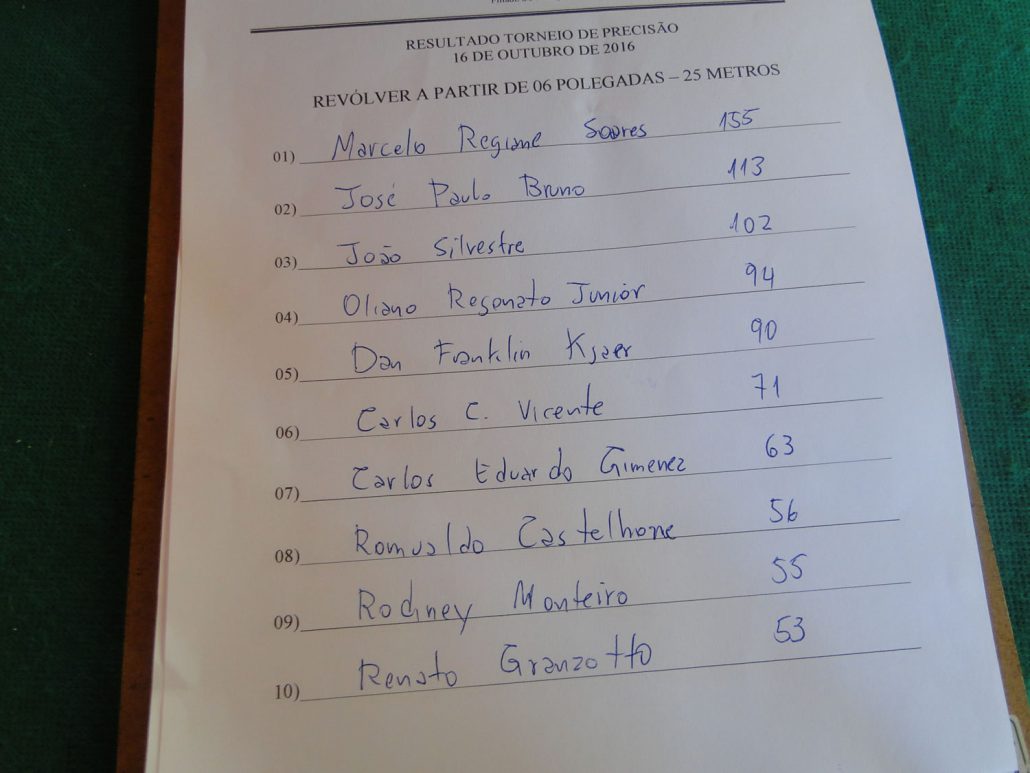 RESULTADO TORNEIO DE PRECISÃO
16 DE OUTUBRO DE 2016
REVÓLVER A PARTIR DE 06 POLEGADAS – 25 METROS
01) Marcelo Regiane Soares 155
02) José Paulo Bruno 113
03) João Silvestre 102
04) Oliano Resonato Junior 94
05) Dan Franklin Kjaer 90
06) Carlos C. Vicente 71
07) Carlos Eduardo Gimenez 63
08) Romualdo Castelhone 56
09) Rodney Monteiro 55
10) Renato Granzotto 53